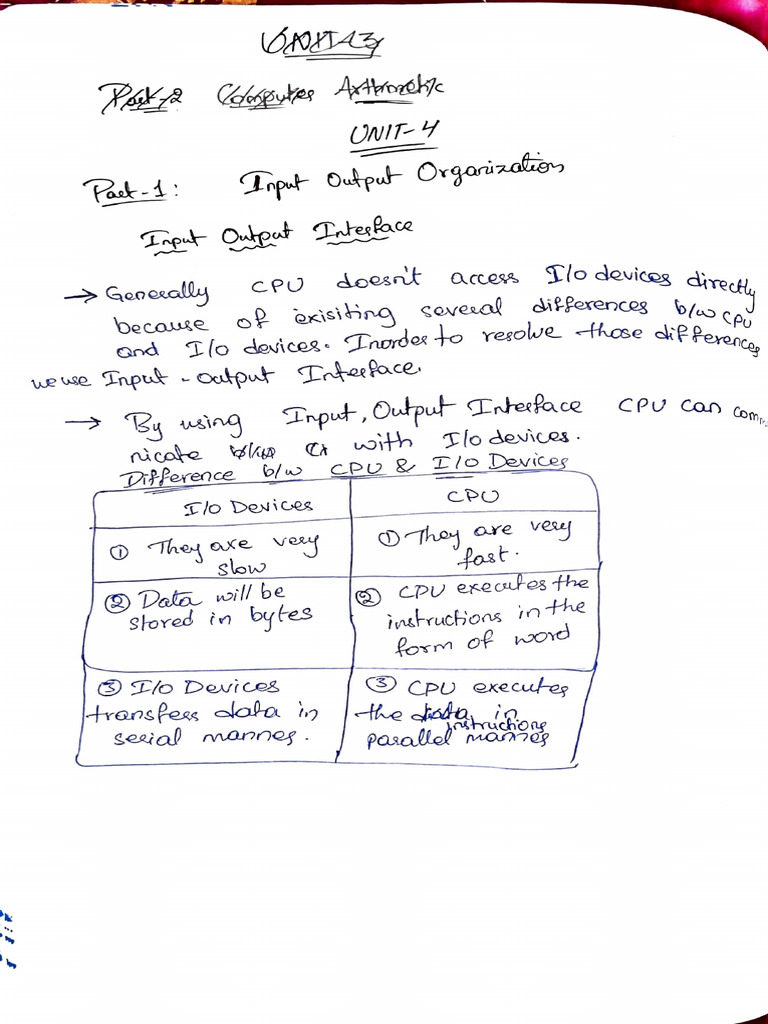 UNIT-3
Part-2 Computer Arithmetic
UNIT-4
Part-1: Input Output Organization
Input Output Interface
→ Generally CPU doesn't access I/o devices directly
because of exisiting several differences b/w CPU
and I/o devices. Inorder to resolve those differences
we use Input-output Interface.
→ By using Input, Output Interface CPU can comm
nicate with I/o devices.
Difference b/w CPU & I/O Devices
I/o Devices
CPU
① They are very
slow
① They are very
fast.
② Data will be
stored in bytes
② CPU executes the
instructions in the
form of word
③ I/o Devices
transfers data in
serial manner.
③ CPU executes
the data in
instructions
parallel manner